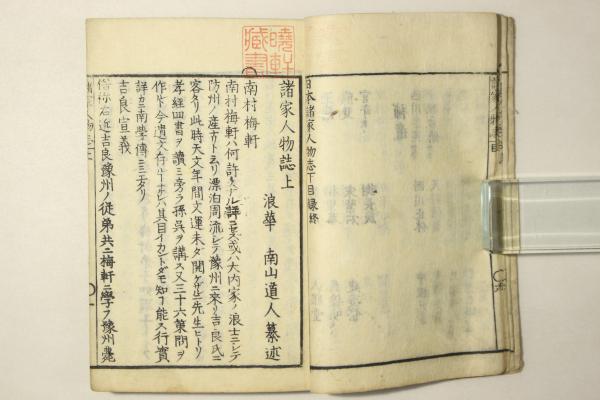 日本諸家人物誌下目録終
諸家人物誌上
浪華 南山道人纂述
南村梅軒
南村梅軒ハ何許ノ人ナルヿ詳ニセズ或ハ大内家ノ浪士ニシテ
防州ノ産ナリトモ云リ漂泊周流シテ豫州ニ來リ吉良氏ニ
客タリ此時天文年間文運未ダ開ケザルニ先生ヒトリ
孝經四書ヲ讀ミ旁ラ孫吳ヲ講ス又三十六策問ヲ
作ル今遺文存セザレバ其目イカントダモ知ルヿ能ス行實
詳カニ南學傳ニミエタリ
吉良宣義
俗稱右近吉良豫州ノ從弟共ニ梅軒ニ學フ豫州薨